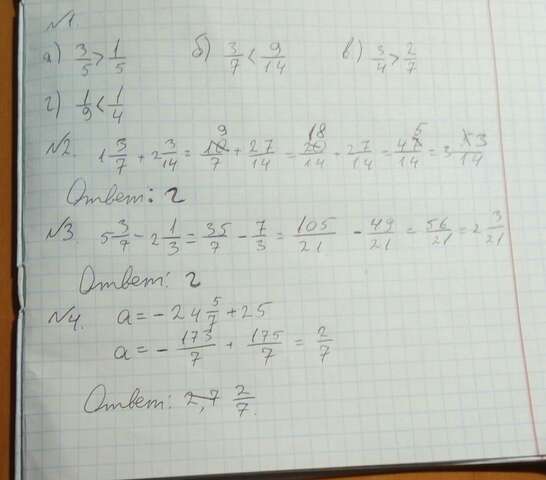 №1.
а) 3/5 > 1/5 б) 3/7 < 9/14 в) 3/4 > 2/7
г) 1/9 < 1/4
№2. 1 3/7 + 2 3/14 = 10/7 + 27/14 = 20/14 + 27/14 = 47/14 = 3 3/14
Ответ: г
№3. 5 3/7 - 2 1/3 = 35/7 - 7/3 = 105/21 - 49/21 = 56/21 = 2 3/21
Ответ: г
№4. a = - 24 5/7 + 25
a = - 173/7 + 175/7 = 2/7
Ответ: 2,7 2/7.